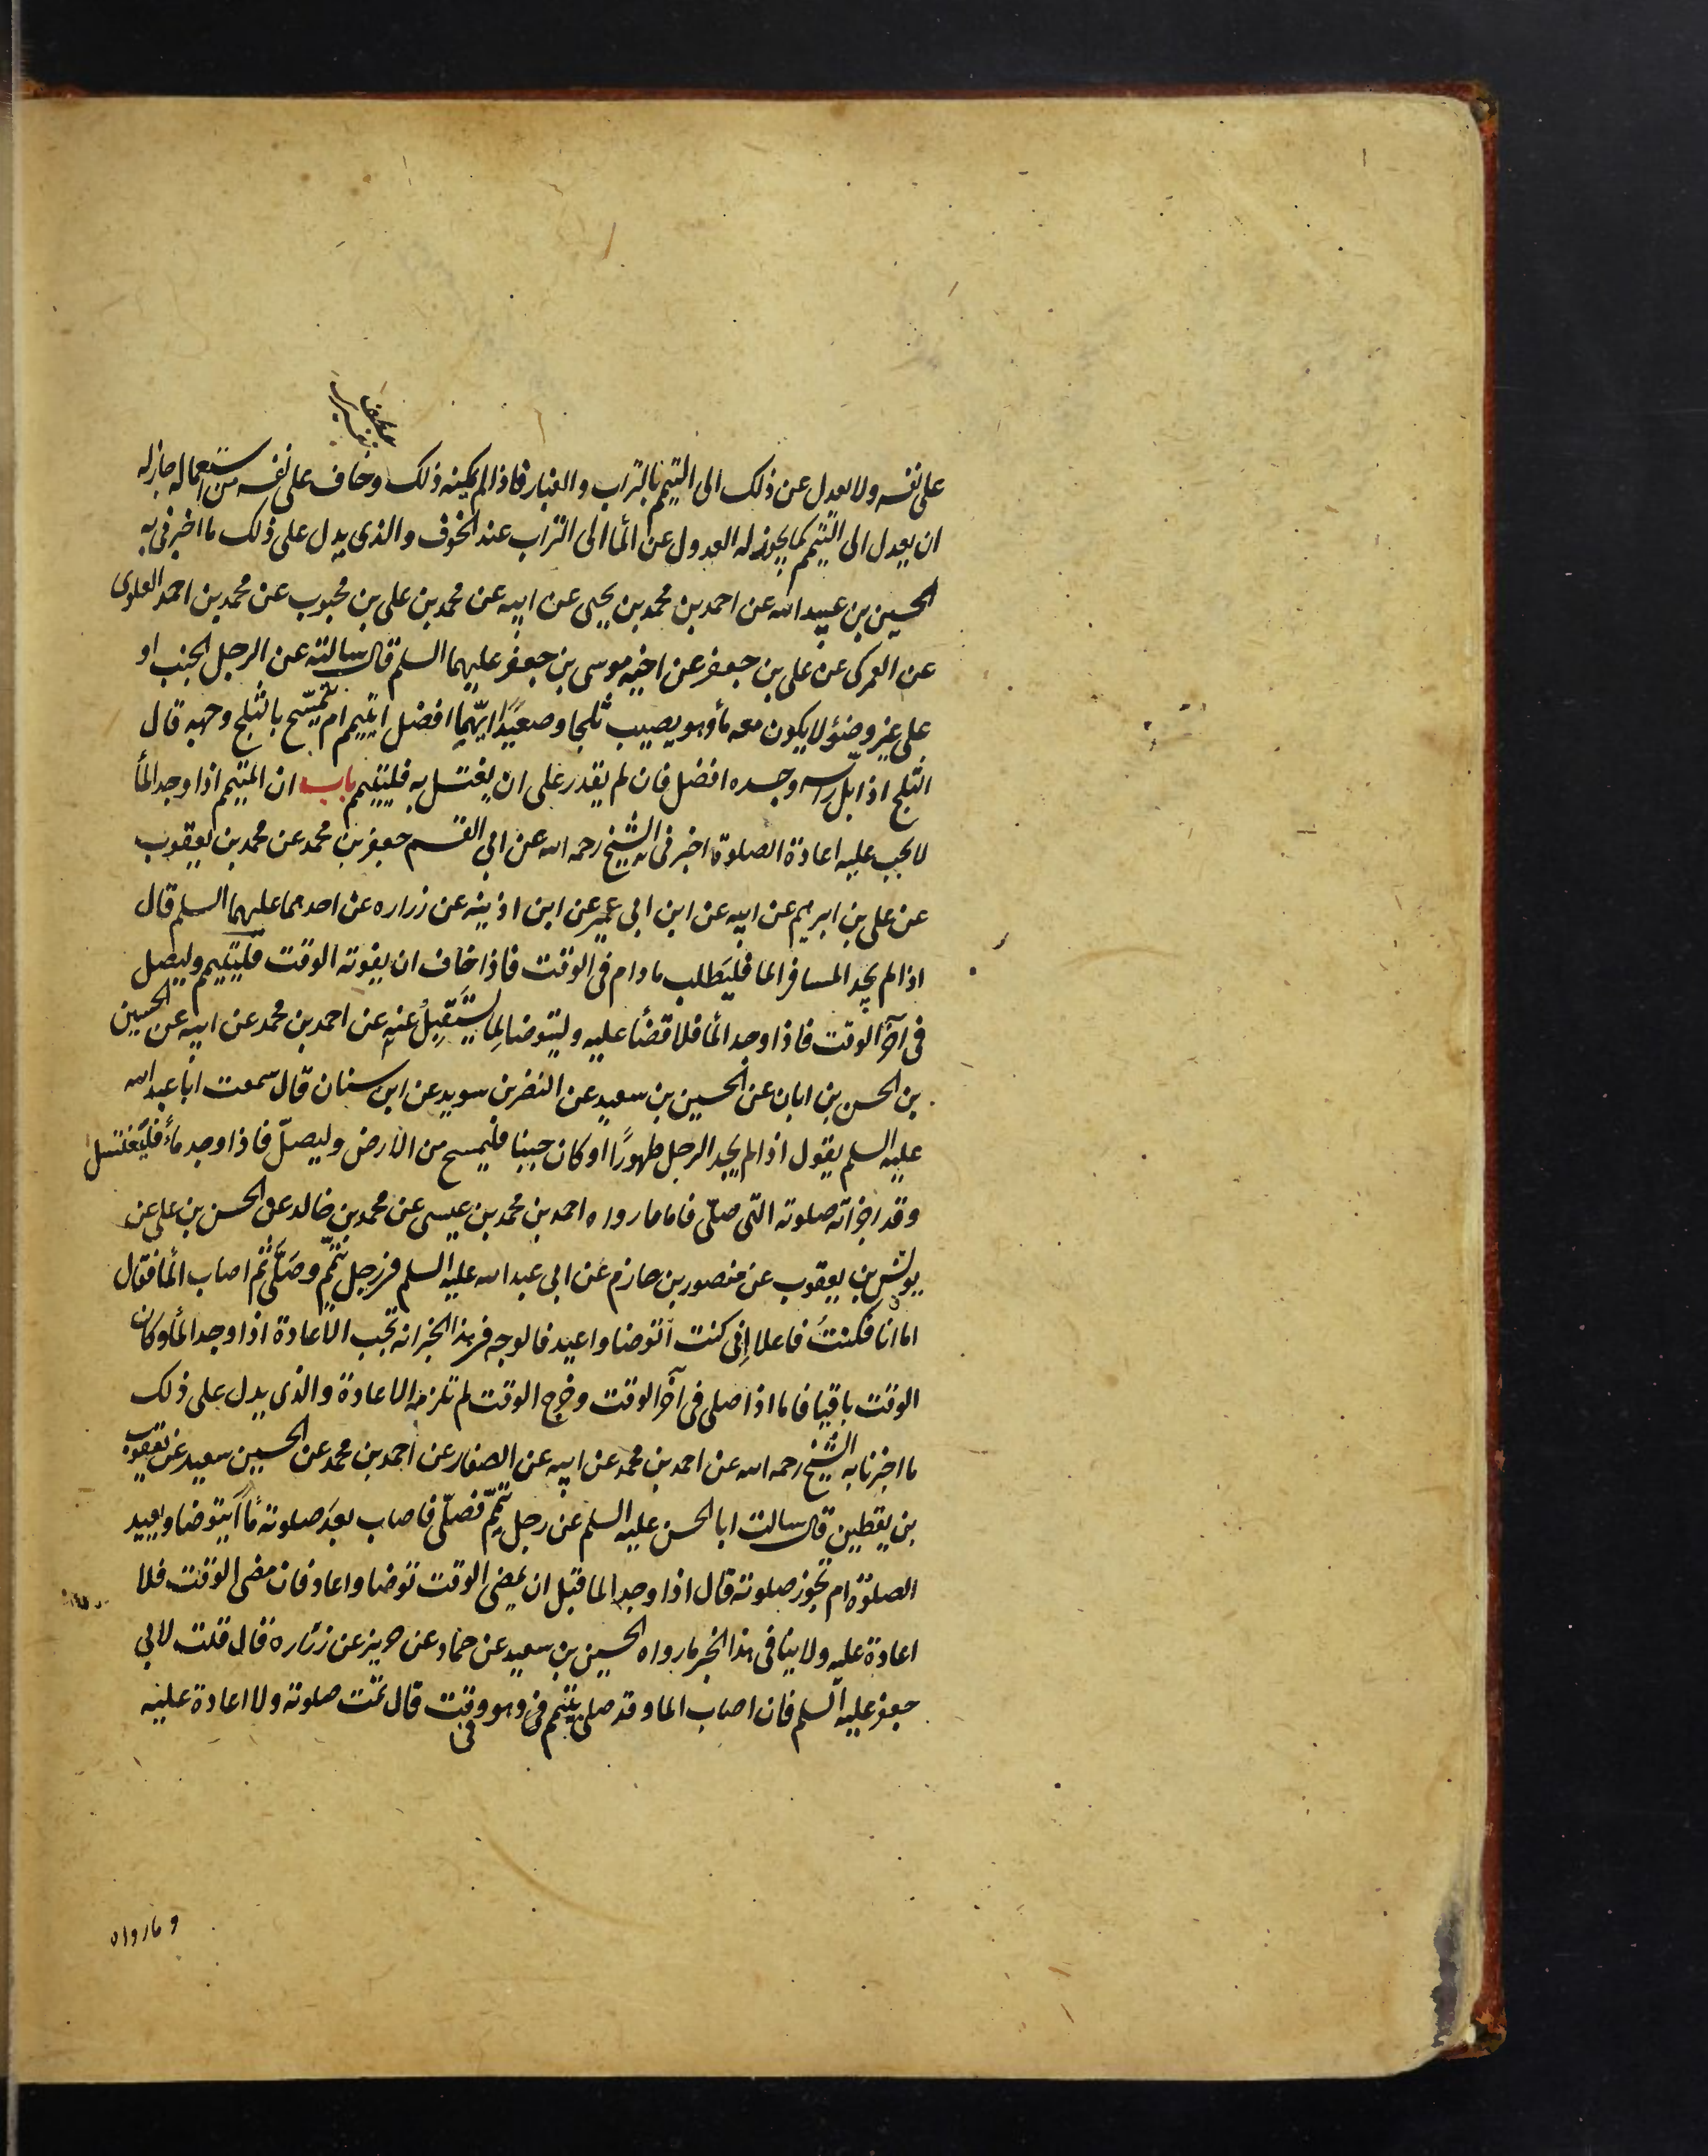 على نفسه ولا يعدل عن ذلك الى التيمم بالتراب والغبار فاذا لم يمكنه ذلك وخاف على نفسه من استعماله جاز له
ان يعدل الى التيمم كما يجوز له العدول عن المآ الى التراب عند الخوف والذى يدل على ذلك ما اخبرنى به
الحسين بن عبيد الله عن احمد بن محمد بن يحيى عن ابيه عن محمد بن على بن محبوب عن محمد بن احمد العلوى
عن العمركى عن على بن جعفر عن اخيه موسى بن جعفر عليهما السلم قال سالته عن الرجل الجنب او
على غير وضوٓ لا يكون معه مآ وهو يصيب ثلجا وصعيدًا ايّهما افضل ايتيمم ام يتمسّح بالثلج وجهه قال
الثلج اذا بلّ راسه وجسده افضل فان لم يقدر على ان يغتسل به فليتيمم باب ان المتيمم اذا وجد المآ
لا يجب عليه اعادة الصلوة اخبرنى الشيخ رحمه الله عن ابي القسم جعفر بن محمد عن محمد بن يعقوب
عن على بن ابرهيم عن ابيه عن ابن ابى عمير عن ابن اذينه عن زراره عن احدهما عليهما السلم قال
اذا لم يجد المسافر الما فليَطلب ما دام فى الوقت فاذا خاف ان يفوته الوقت فليتيمم وليصل
فى آخر الوقت فاذا وجد المآ فلا قضٓا عليه وليتوضا لِما يستَقبِلُ عنه عن احمد بن محمد عن ابيه عن الحسين
بن الحسن بن ابان عن الحسين بن سعيد عن النضر بن سويد عن ابن سنان قال سمعت ابا عبد الله
عليه السلم يقول اذا لم يجد الرجل طهورًا او كان جنبا فليمسح من الارض وليصلّ فاذا وجد مآء فليَغتسل
وقد اجزاته صلوته التى صلّى فاما ما رواه احمد بن محمد بن عيسى عن محمد بن خالد عن الحسن بن على عن
يونس بن يعقوب عن منصور بن حازم عن ابى عبد الله عليه السلم فى رجل تيمّم وصَلّى ثم اصاب المآ فقال
اما انا فكنتُ فاعلا اِنى كنت اتوضا واعيد فالوجه فى هذا الخبر انه تجب الاعادة اذا وجد المآ وكان
الوقت باقيا فاما اذا صلى فى آخر الوقت وخرج الوقت لم تلزمه الاعادة والذى يدل على ذلك
ما اخبرنا به الشيخ رحمه الله عن احمد بن محمد عن ابيه عن الصفار عن احمد بن محمد عن الحسين سعيد عن يعقوب
بن يقطين قال سالت ابا الحسن عليه السلم عن رجل تيمّم فصلّى فاصاب بعدَ صلوته مآ ايتوضا ويعيد
الصلوة ام تجوز صلوته قال اذا وجد الما قبل ان يمضى الوقت توضا واعاد فان مضى الوقت فلا
اعادة عليه ولا ينافى هذا الخبر ما رواه الحسين بن سعيد عن حماد عن حريز عن زراره قال قلت لابي
جعفر عليه السلم فان اصاب الما وقد صلى بتيمم وهو فى وقت قال تمت صلوته ولا اعادة عليه
وما رواه